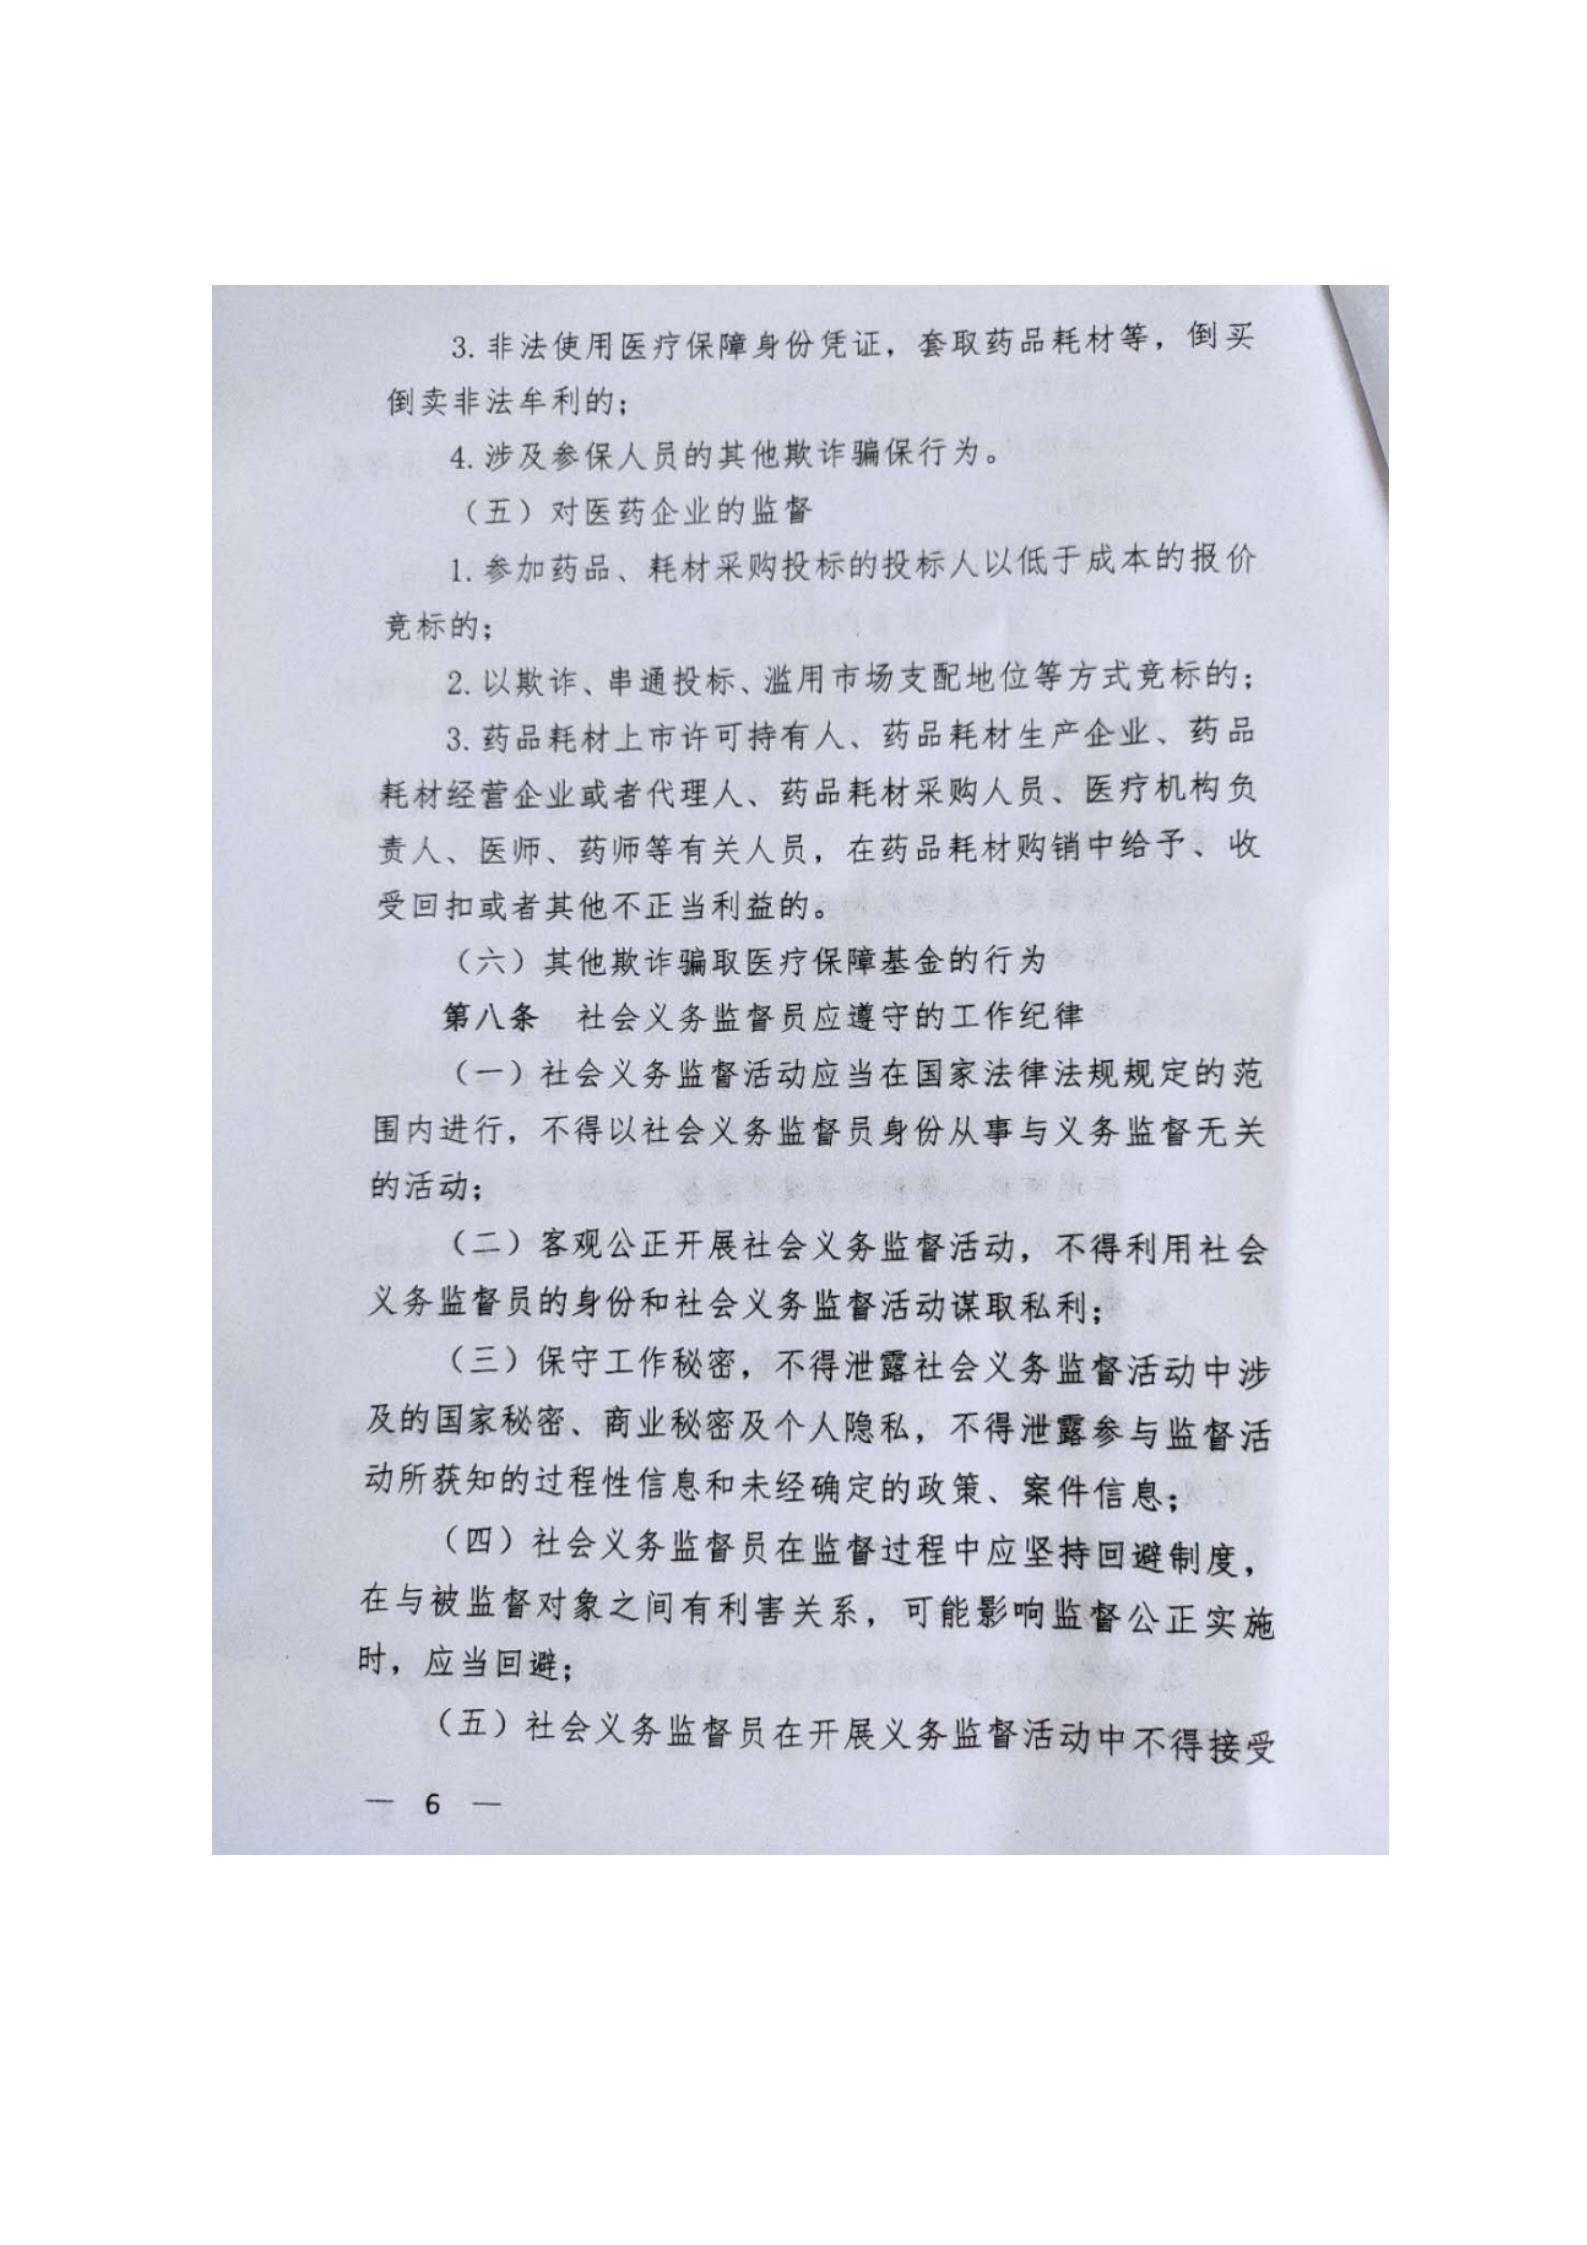 3.非法使用医疗保障身份凭证，套取药品耗材等，倒买
倒卖非法牟利的；
4.涉及参保人员的其他欺诈骗保行为。
（五）对医药企业的监督
1.参加药品、耗材采购投标的投标人以低于成本的报价
竞标的；
2.以欺诈、串通投标、滥用市场支配地位等方式竞标的；
3.药品耗材上市许可持有人、药品耗材生产企业、药品
耗材经营企业或者代理人、药品耗材采购人员、医疗机构负
责人、医师、药师等有关人员，在药品耗材购销中给予、收
受回扣或者其他不正当利益的。
（六）其他欺诈骗取医疗保障基金的行为
第八条　社会义务监督员应遵守的工作纪律
（一）社会义务监督活动应当在国家法律法规规定的范
围内进行，不得以社会义务监督员身份从事与义务监督无关
的活动；
（二）客观公正开展社会义务监督活动，不得利用社会
义务监督员的身份和社会义务监督活动谋取私利；
（三）保守工作秘密，不得泄露社会义务监督活动中涉
及的国家秘密、商业秘密及个人隐私，不得泄露参与监督活
动所获知的过程性信息和未经确定的政策、案件信息；
（四）社会义务监督员在监督过程中应坚持回避制度，
在与被监督对象之间有利害关系，可能影响监督公正实施
时，应当回避；
（五）社会义务监督员在开展义务监督活动中不得接受
— 6 —